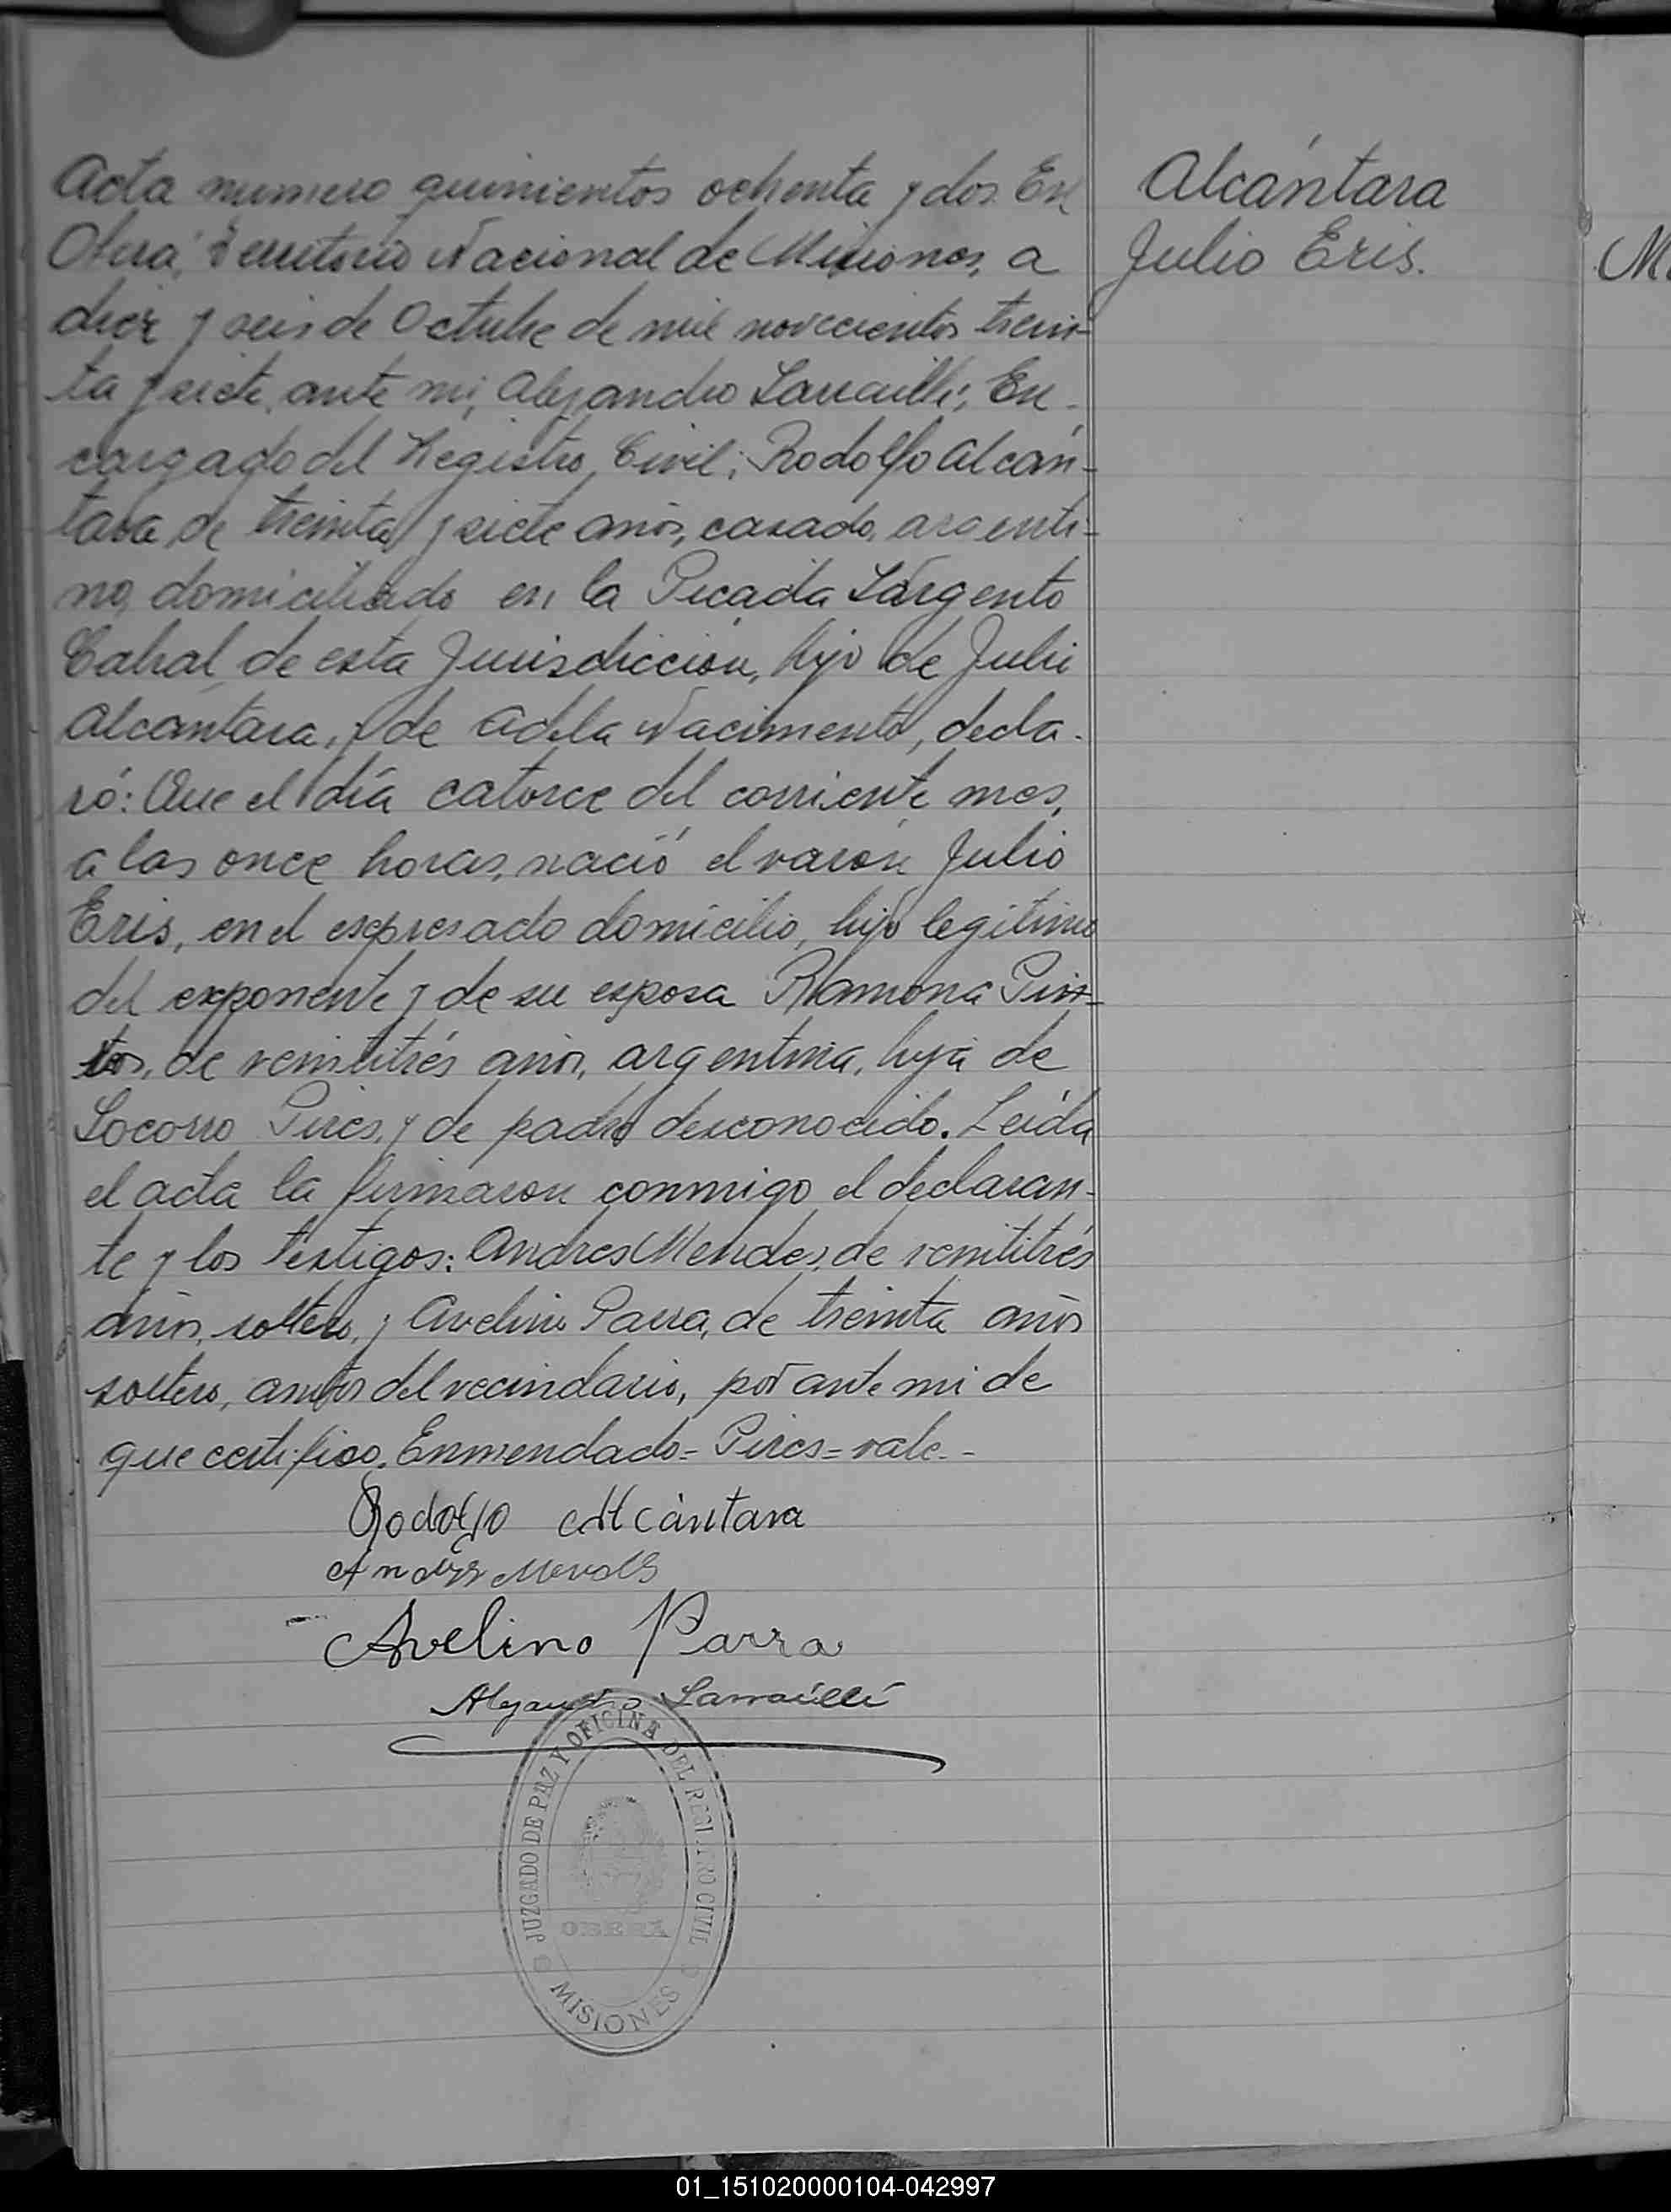 Acta numero quinientos ochenta y dos. En
Oberá, Territorio Nacional de Misiones, a
diez y seis de Octubre de mil novecientos trein-
ta y siete, ante mi, Alejandro Larraillí, En-
cargado del Registro Civil; Rodolfo Alcán-
tara, de treinta y siete años, casado, argenti-
no, domiciliado en la Picada Sargento
Cabral, de esta Jurisdicción, hijo de Julio
Alcantara, y de Adela Nacimento, decla-
ró: Que el día catorce del corriente mes,
a las once horas, nació el varón Julio
Eris, en el expresado domicilio, hijo legítimo
del exponente y de su esposa Ramona
de veintitrés años, argentina, hija de
Socorro Pires, y de padre desconocido. Leida
el acta la firmaron conmigo el declaran-
te y los testigos: Andres Mendes, de veintitrés
años, soltero, y Avelino Parra, de treinta años
soltero, ambos del vecindario, por ante mi de
que certifico. Enmendado = Pires = vale.-
Rodolfo Alcántara
Andres Mendes
Avelino Parra
Alejandro Larraillí
JUZGADO DE PAZ Y OFICINA DEL REGISTRO CIVIL
OBERÁ
MISIONES
Alcántara
Julio Eris.
M
01_151020000104-042997